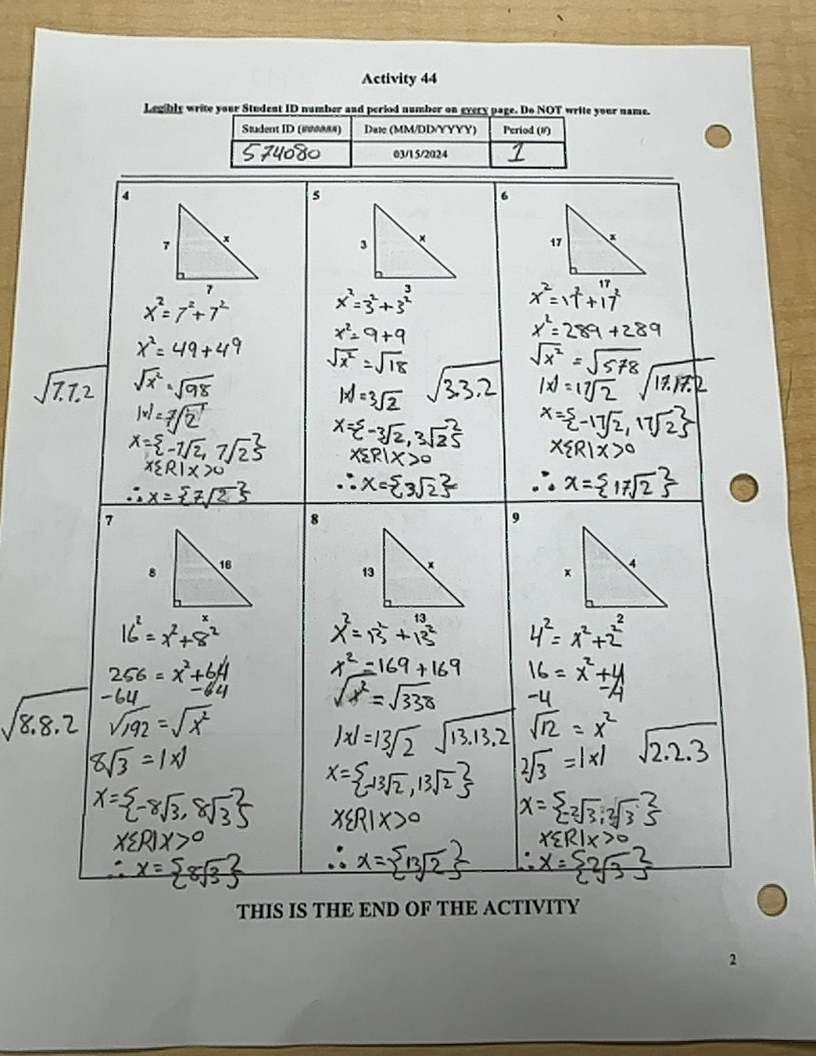 Activity 44
Legibly write your Student ID number and period number on every page. Do NOT write your name.
Student ID (######) Date (MM/DD/YYYY) Period (#)
574080 03/15/2024 1
4
7
x
7
x²=7²+7²
x²=49+49
√x²=√98
√7.7.2
|x|=7√2
x={-7√2, 7√2}
xƐR|x>0
∴x={7√2}
5
3
x
3
x²=3²+3²
x²=9+9
√x²=√18
|x|=3√2
√3.3.2
x={-3√2, 3√2}
xƐR|x>0
∴x={3√2}
6
17
x
17
x²=17²+17²
x²=289+289
√x²=√578
|x|=17√2
√17.17.2
x={-17√2, 17√2}
xƐR|x>0
∴x={17√2}
7
8
16
x
16²=x²+8²
256=x²+64
-64 -64
√192=√x²
√8.8.2
8√3=|x|
x={-8√3, 8√3}
xƐR|x>0
∴x={8√3}
8
13
x
13
x²=13²+13²
x²=169+169
√x²=√338
|x|=13√2
√13.13.2
x={-13√2, 13√2}
xƐR|x>0
∴x={13√2}
9
x
4
2
4²=x²+2²
16=x²+4
-4 -4
√12=x²
2√3=|x|
√2.2.3
x={-2√3, 2√3}
xƐR|x>0
∴x={2√3}
THIS IS THE END OF THE ACTIVITY
2